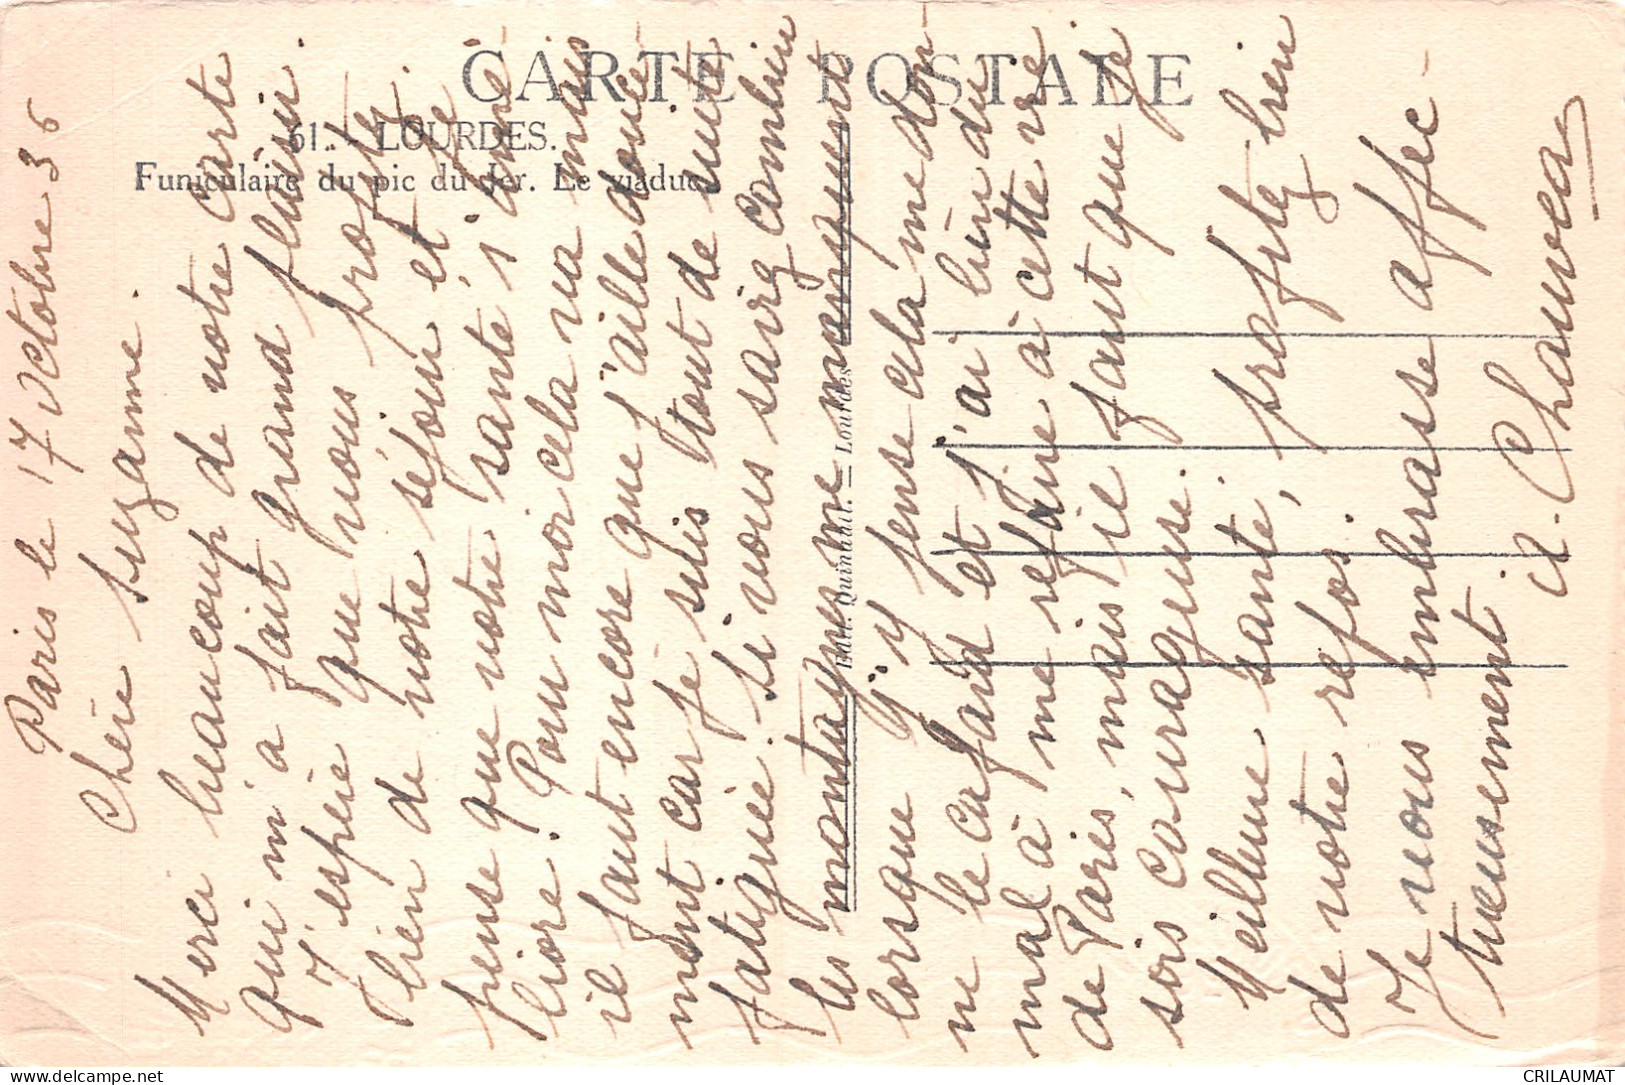 CARTE POSTALE
61. - LOURDES.
Funiculaire du pic du Jer. Le viaduc
Edit. Quinault. — Lourdes
Paris le 17 Octobre 36
Chère Suzanne.
Merci beaucoup de votre carte
qui m'a fait grand plaisir.
J'espère que vous profitez
bien de votre séjour et je
pense que votre santé s'amé
liore. Pour moi cela va mais
il faut encore que j'aille douce
ment car je suis tout de suite
fatiguée. Si vous saviez combien
les montagnes me manquent
lorsque j'y pense cela me don
ne le cafard et j'ai bien du
mal à me refaire à cette vie
de Paris, mais il faut que je
sois courageuse.
Meilleure santé, profitez bien
de votre repos.
Je vous embrasse affec-
tueusement.
A. Chauveau
CRILAUMAT